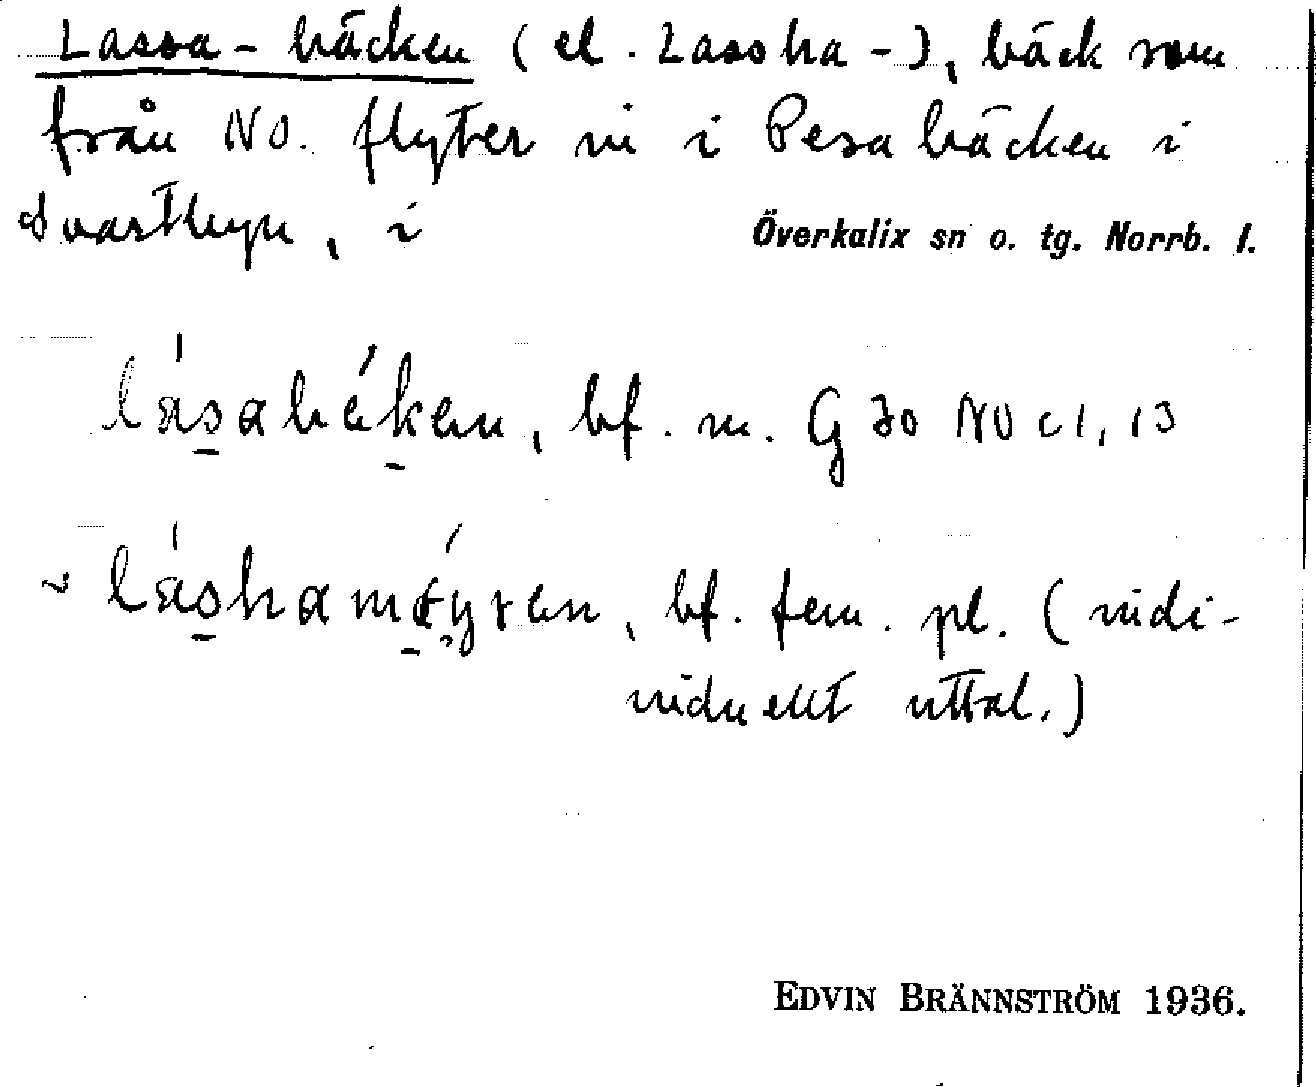 Lassa-bäcken (el. Lassha-), bäck som
från NO. flyter in i Pesabäcken i
Svartbyn, i Överkalix sn o. tg. Norrb. l.
lásabékən, bf. m. G 30 NO c 1, 13
~ láshamǿyrən, bf. fem. pl. (indi-
viduellt uttal.)
EDVIN BRÄNNSTRÖM 1936.